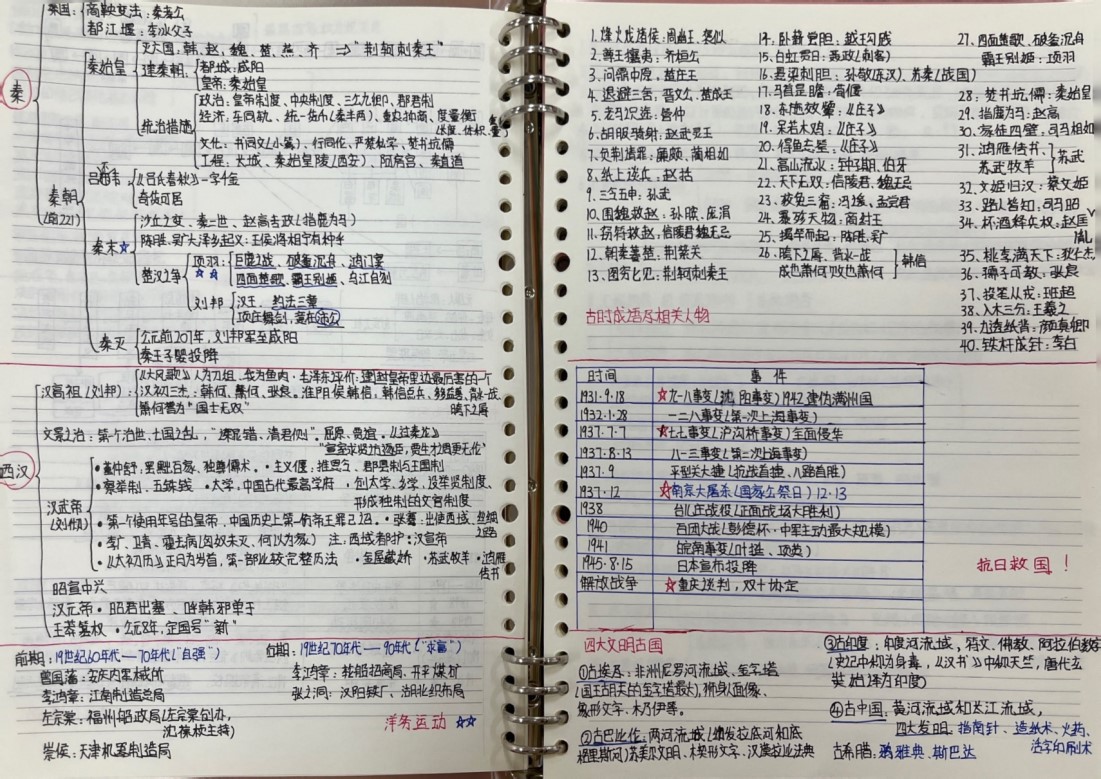 秦国：商鞅变法：秦孝公
都江堰：李冰父子
秦
秦始皇
灭六国、韩、赵、魏、楚、燕、齐 → "荆轲刺秦王"
建秦朝
都城：咸阳
皇帝：秦始皇
统治措施
政治：皇帝制度、中央制度、三公九卿、郡县制
经济：车同轨、统一货币(秦半两)、重农抑商、度量衡
文化：书同文(小篆)、行同伦、严禁私学、焚书坑儒
工程：长城、秦始皇陵(西安)、阿房宫、秦直道
吕不韦
《吕氏春秋》一字千金
奇货可居
秦朝
(前221)
秦末☆
沙丘之变、秦二世、赵高专政(指鹿为马)
陈胜、吴广大泽乡起义：王侯将相宁有种乎
楚汉之争
项羽：
☆☆
巨鹿之战、破釜沉舟、鸿门宴
四面楚歌、霸王别姬、乌江自刎
刘邦
汉王、约法三章
项庄舞剑，意在沛公
秦灭
公元前207年，刘邦军至咸阳
秦王子婴投降
西汉
汉高祖(刘邦)：
《大风歌》人为刀俎，我为鱼肉·毛泽东评价：建封皇帝里边最厉害的一个
汉初三杰：韩信、萧何、张良、淮阴侯韩信，韩信点兵、多多益善、背水一战、
垓下之围
萧何誉为"国士无双"
文景之治：第一个治世、七国之乱，"诛晁错、清君侧"。屈原、贾谊、《过秦论》
"宣室求贤访逐臣，贾生才调更无伦"
汉武帝
(刘彻)
·董仲舒，罢黜百家、独尊儒术。·主父偃：推恩令、郡县制与王国制
·察举制、五铢钱 ·太学，中国古代最高学府 ·创太学、乡学、设举贤制度、
形成独制的文官制度
·第一个使用年号的皇帝，中国历史上第一个用帝王罪己诏。·张骞：出使西域、丝绸之路
·李广、卫青、霍去病(匈奴未灭、何以为家) 注：西域都护：汉宣帝
·《太初历》正月为岁首，第一部比较完整历法 ·金屋藏娇 ·苏武牧羊·鸿雁传书
昭宣中兴
汉元帝·昭君出塞、呼韩邪单于
王莽篡权·公元8年，定国号"新"
前期：19世纪60年代—70年代("自强")
曾国藩：安庆内军械所
李鸿章：江南制造总局
左宗棠：福州船政局(左宗棠创办，
沈葆桢主持)
崇候：天津机器制造局
后期：19世纪70年代—90年代("求富")
李鸿章：轮船招商局、开平煤矿
张之洞：汉阳铁厂、湖北织布局
洋务运动 ☆☆
1.烽火戏诸侯：周幽王、褒姒
2.尊王攘夷：齐桓公
3.问鼎中原、楚庄王
4.退避三舍：晋文公、楚成王
5.老马识途：管仲
6.胡服骑射：赵武灵王
7.负荆请罪：廉颇、蔺相如
8.纸上谈兵：赵括
9.三令五申：孙武
10.围魏救赵：孙膑、庞涓
11.窃符救赵，信陵君魏无忌
12.朝秦暮楚、荆紫关
13.图穷匕见：荆轲刺秦王
14.卧薪尝胆：越王勾践
15.白虹贯日：聂政(刺客)
16.悬梁刺股：孙敬(东汉)、苏秦(战国)
17.马首是瞻：荀偃
18.东施效颦：《庄子》
19.呆若木鸡：《庄子》
20.得鱼忘筌：《庄子》
21.高山流水：钟子期、伯牙
22.天下无双：信陵君、魏无忌
23.狡兔三窟：冯谖、孟尝君
24.暴殄天物：商纣王
25.揭竿而起：陈胜、吴广
26.垓下之围、背水一战
成也萧何败也萧何
韩信
27.四面楚歌、破釜沉舟
霸王别姬：项羽
28.焚书坑儒：秦始皇
29.指鹿为马：赵高
30.家徒四壁：司马相如
31.鸿雁传书、
苏武牧羊
苏武
32.文姬归汉：蔡文姬
33.路人皆知：司马昭
34.杯酒释兵权：赵匡胤
35.桃李满天下：狄仁杰
36.孺子可教：张良
37.投笔从戎：班超
38.入木三分：王羲之
39.力透纸背：颜真卿
40.铁杵成针：李白
古时成语及相关人物
时间 事件
1931.9.18 ☆九一八事变(沈阳事变)1942建伪满州国
1932.1.28 一二八事变(第一次上海事变)
1937.7.7 ☆七七事变(卢沟桥事变)全面侵华
1937.8.13 八一三事变(第二次上海事变)
1937.9 平型关大捷(抗战首捷、八路首胜)
1937.12 ☆南京大屠杀(国家公祭日)12.13
1938 台儿庄战役(正面战场大胜利)
1940 百团大战(彭德怀·中军主动最大规模)
1941 皖南事变(叶挺、项英)
1945.8.15 日本宣布投降
解放战争 ☆重庆谈判，双十协定
抗日救国！
四大文明古国
①古埃及：非洲尼罗河流域、金字塔
(国王胡夫的金字塔最大)，狮身人面像、
象形文字、木乃伊等。
②古巴比伦：两河流域(幼发拉底河和底
格里斯河)苏美尔文明、木楔形文字、汉谟拉比法典
③古印度：印度河流域，梵文、佛教、阿拉伯数字
(史记中称为身毒，《汉书》中称天竺，唐代玄
奘始译为印度)
④古中国：黄河流域和长江流域，
四大发明：指南针、造纸术、火药、
活字印刷术
古希腊：雅典、斯巴达